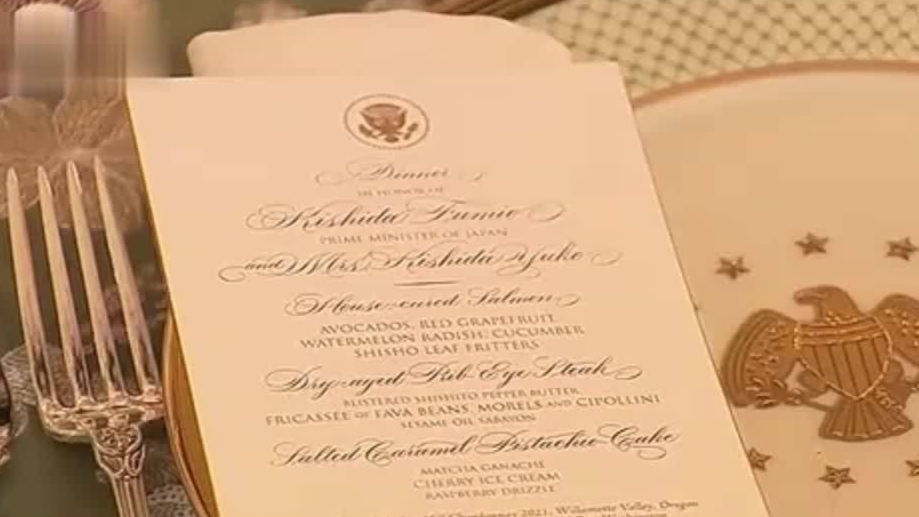 Dinner
IN HONOR OF
Kishida Fumio
PRIME MINISTER OF JAPAN
and Mrs. Kishida Yuko
House-cured Salmon
AVOCADOS, RED GRAPEFRUIT,
WATERMELON RADISH, CUCUMBER
SHISHO LEAF FRITTERS
Dry-aged Rib Eye Steak
BLISTERED SHISHITO PEPPER BUTTER
FRICASSEE OF FAVA BEANS, MORELS AND CIPOLLINI
SESAME OIL SABAYON
Salted Caramel Pistachio Cake
MATCHA GANACHE
CHERRY ICE CREAM
RASPBERRY DRIZZLE
Chardonnay 2021, Willamette Valley, Oregon